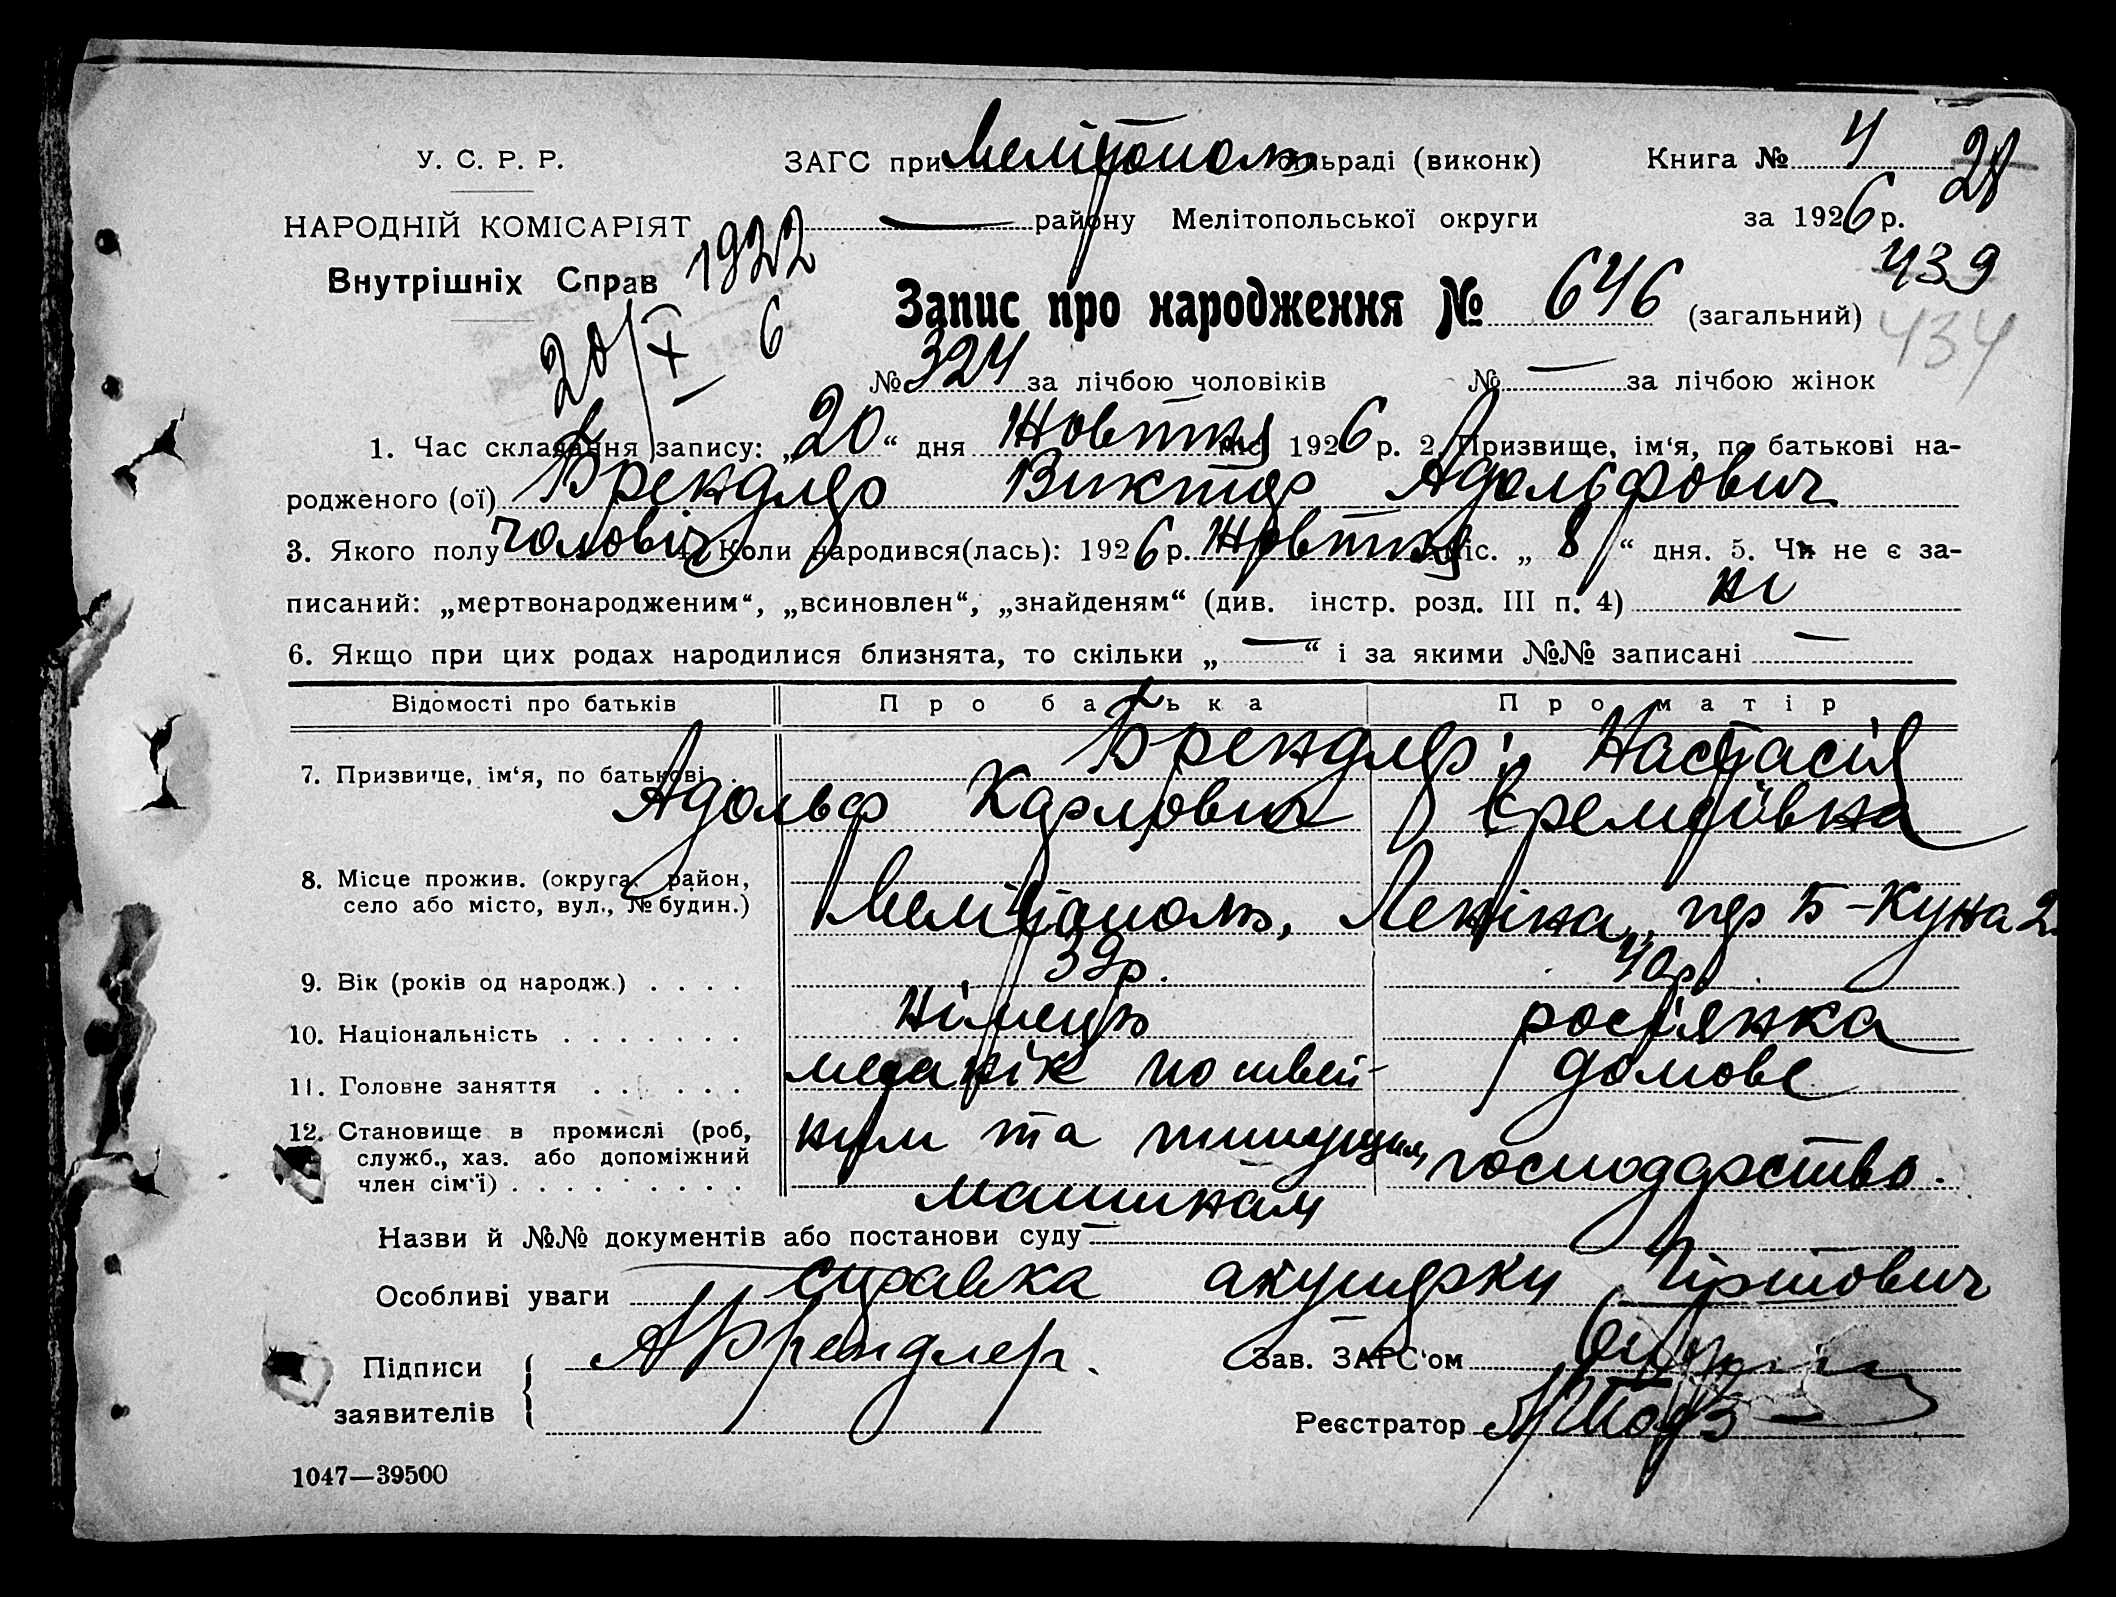 У. С. Р. Р.
НАРОДНІЙ КОМІСАРІЯТ
Внутрішніх Справ
1922
20/X 6
ЗАГС при Мелітополь сільраді (виконк)
— району Мелітопольської округи
Книга № 4
28
за 1926 р.
439
434
Запис про народження № 646 (загальний)
№ 324 за лічбою чоловіків № — за лічбою жінок
1. Час складання запису: „20“ дня Жовтня міс. 1926 р. 2. Призвище, ім‘я, по батькові на-
родженого (ої) Брендлер Виктор Адольфович
3. Якого полу чоловіч 4. Коли народився(лась): 1926 р. Жовтня міс. „8“ дня. 5. Чи не є за-
писаний: „мертвонародженим“, „всиновлен“, „знайденям“ (див. інстр. розд. III п. 4) ні
6. Якщо при цих родах народилися близнята, то скільки „—“ і за якими №№ записані —
Відомості про батьків Про батька Про матір
7. Призвище, ім‘я, по батькові . . Брендлер: Настасія
Адольф Карлович Єремеївна
8. Місце прожив. (округа, район,
село або місто, вул., № будин.) Мелітополь, Леніна, пер Б-Куна 2.
9. Вік (років од народж.) . . . . 39р. 40р.
10. Національність . . . . . . . німець росіянка
11. Головне заняття . . . . . . механік по швей- домове
12. Становище в промислі (роб, ним та пишущим, господарство.
служб., хаз. або допоміжний
член сім‘ї) . . . . . . . . . машинам
Назви й №№ документів або постанови суду —
Особливі уваги справка акушерки
Підписи
заявителів
АБрендлер.
Зав. ЗАГС‘ом
Реєстратор
1047—39500